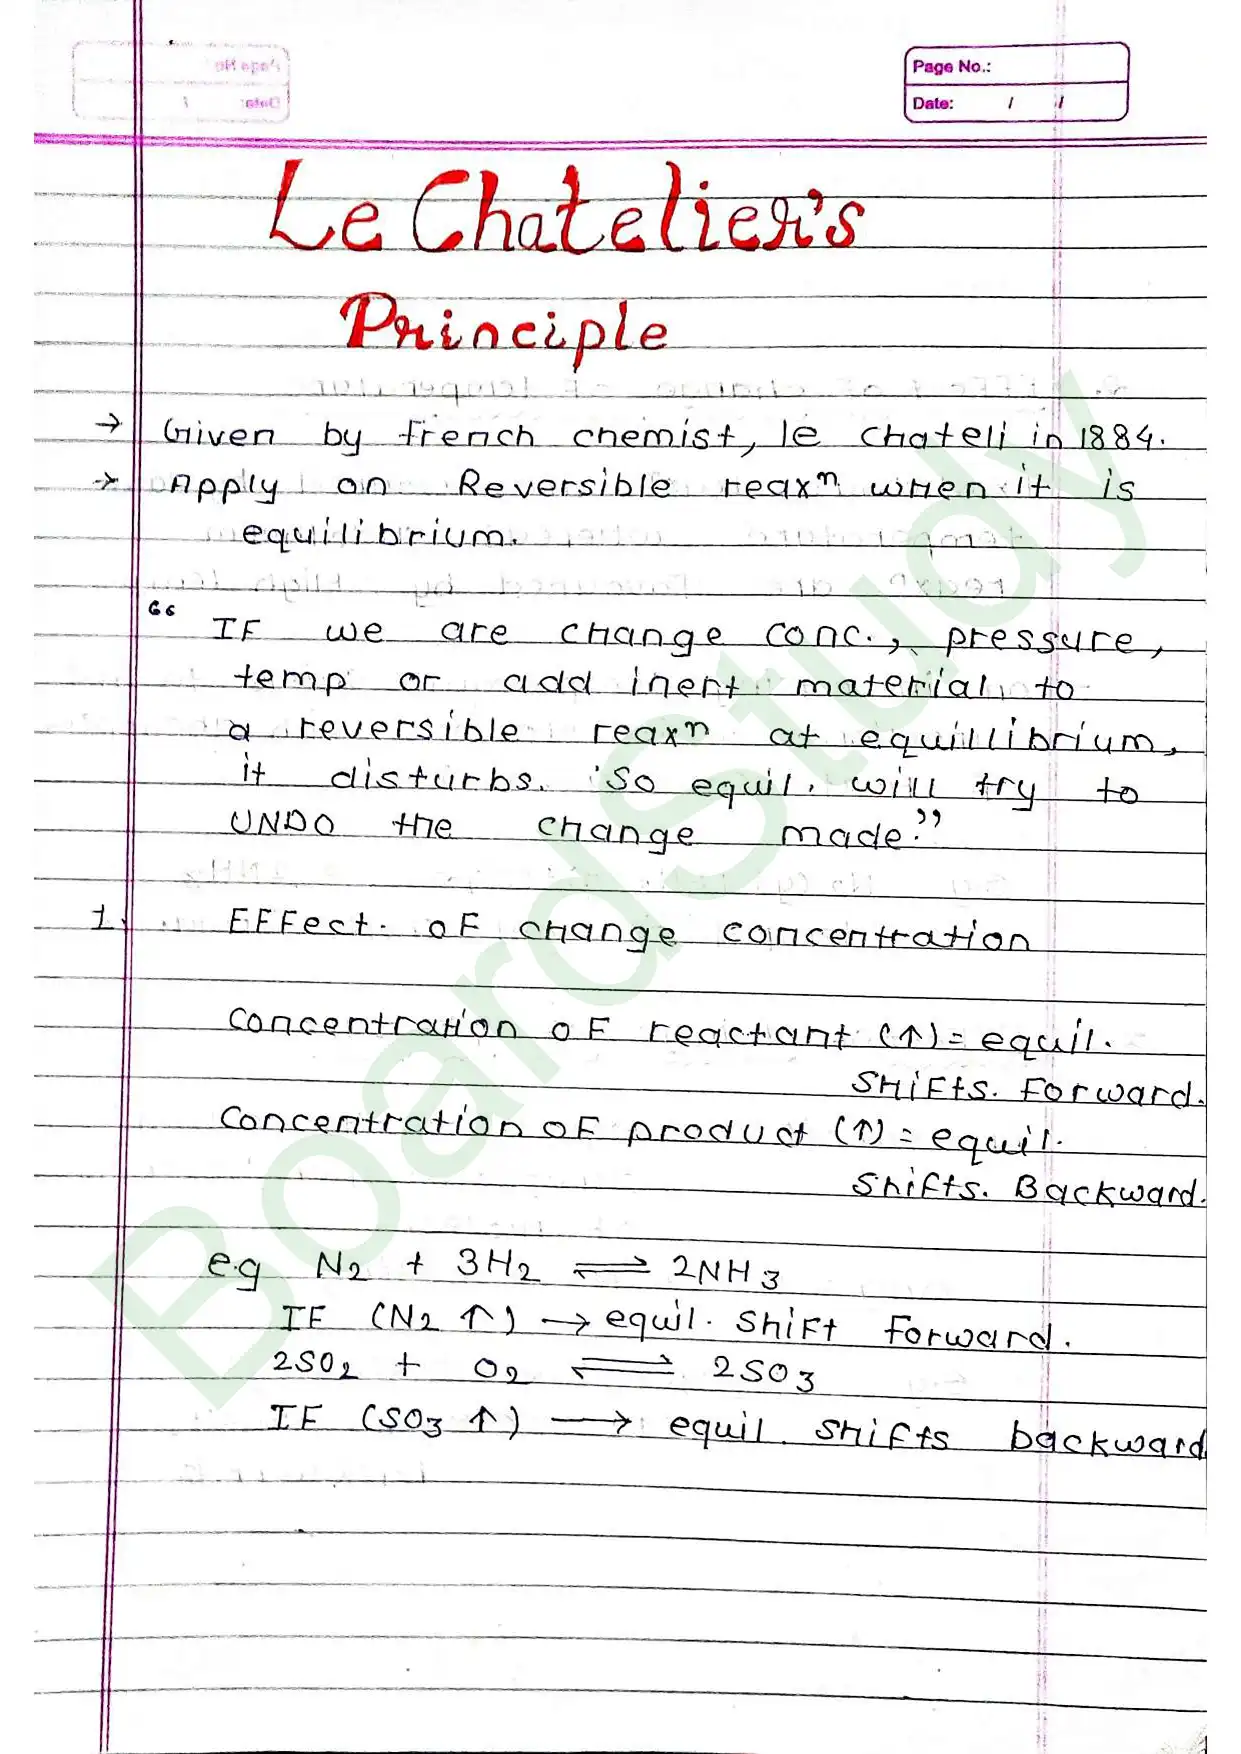 Page No.:
Date: / /
Le Chatelier's
Principle
→ Given by french chemist, le chateli in 1884.
→ Apply on Reversible reaxⁿ when it is
equilibrium.
“ IF we are change conc., pressure,
temp or add inert material to
a reversible reaxⁿ at equillibrium,
it disturbs. So equil. will try to
UNDO the change made.”
1. EFFect. oF change concentration
Concentration oF reactant (↑) = equil.
Shifts. Forward.
Concentration oF product (↑) = equil.
Shifts. Backward.
e.g N2 + 3H2 ⇌ 2NH3
IF (N2 ↑) → equil. Shift Forward.
2SO2 + O2 ⇌ 2SO3
IF (SO3 ↑) → equil. Shifts backward
BoardStudy